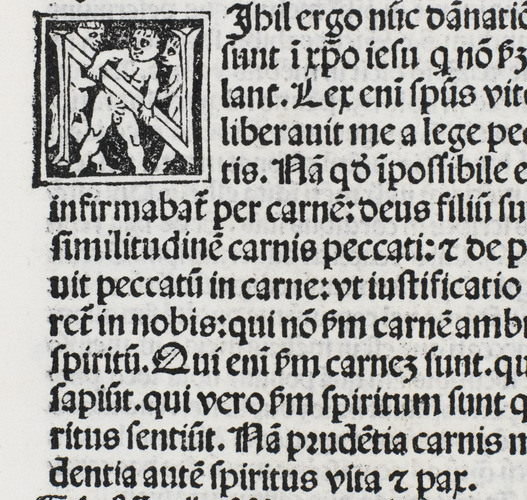 NIhil ergo nūc dānatio
sunt ī xp̄o iesu q nō ẞꝫ
lant. Lex enī spūs vite
liberauit me a lege pec
tis. Nā qđ īpossibile e
infirmabat̄ per carnē: deus filiū su
similitudinē carnis peccati: ⁊ de p
uit peccatū in carne: vt iustificatio
ret̄ in nobis: qui nō ẞm carnē ambu
spiritū. Qui enī ẞm carneꝫ sunt. qu
sapiūt. qui vero ẞm spiritum sunt q
ritus sentiūt. Nā prudētia carnis m
dentia autē spiritus vita ⁊ pax.